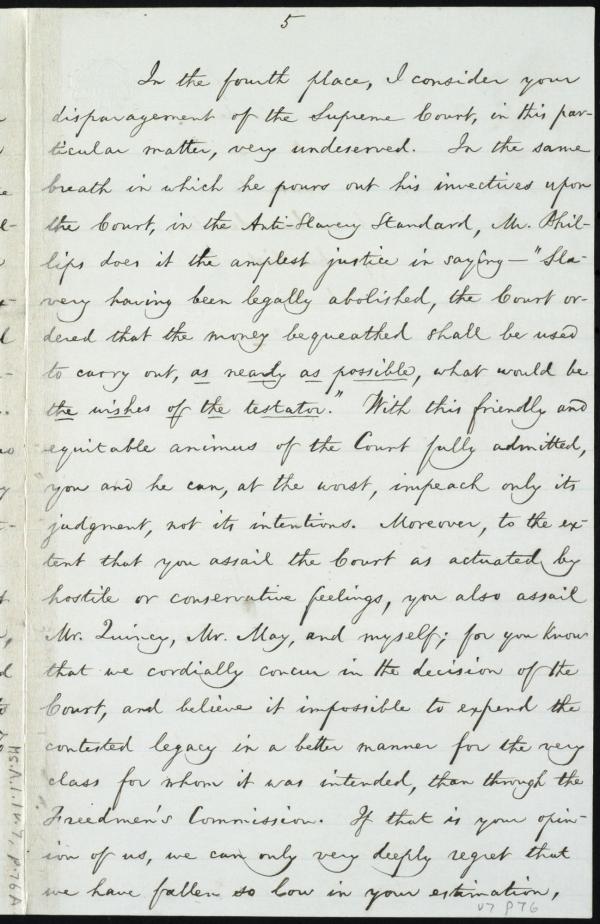 5
In the fourth place, I consider your
disparagement of the Supreme Court, in this par-
ticular matter, very undeserved. In the same
breath in which he pours out his invectives upon
the Court, in the Anti-Slavery Standard, Mr. Phil-
lips does it the amplest justice in saying—"Sla-
very having been legally abolished, the Court or-
dered that the money bequeathed shall be used
to carry out, as nearly as possible, what would be
the wishes of the testator." With this friendly and
equitable animus of the Court fully admitted,
you and he can, at the worst, impeach only its
judgment, not its intentions. Moreover, to the ex-
tent that you assail the Court as actuated by
hostile or conservative feelings, you also assail
Mr. Quincy, Mr. May, and myself; for you know
that we cordially concur in the decision of the
Court, and believe it impossible to expend the
contested legacy in a better manner for the very
class for whom it was intended, than through the
Freedmen's Commission. If that is your opin-
ion of us, we can only very deeply regret that
we have fallen so low in your estimation,
v7 p76
MS.A.1.1 v.7, p.76A